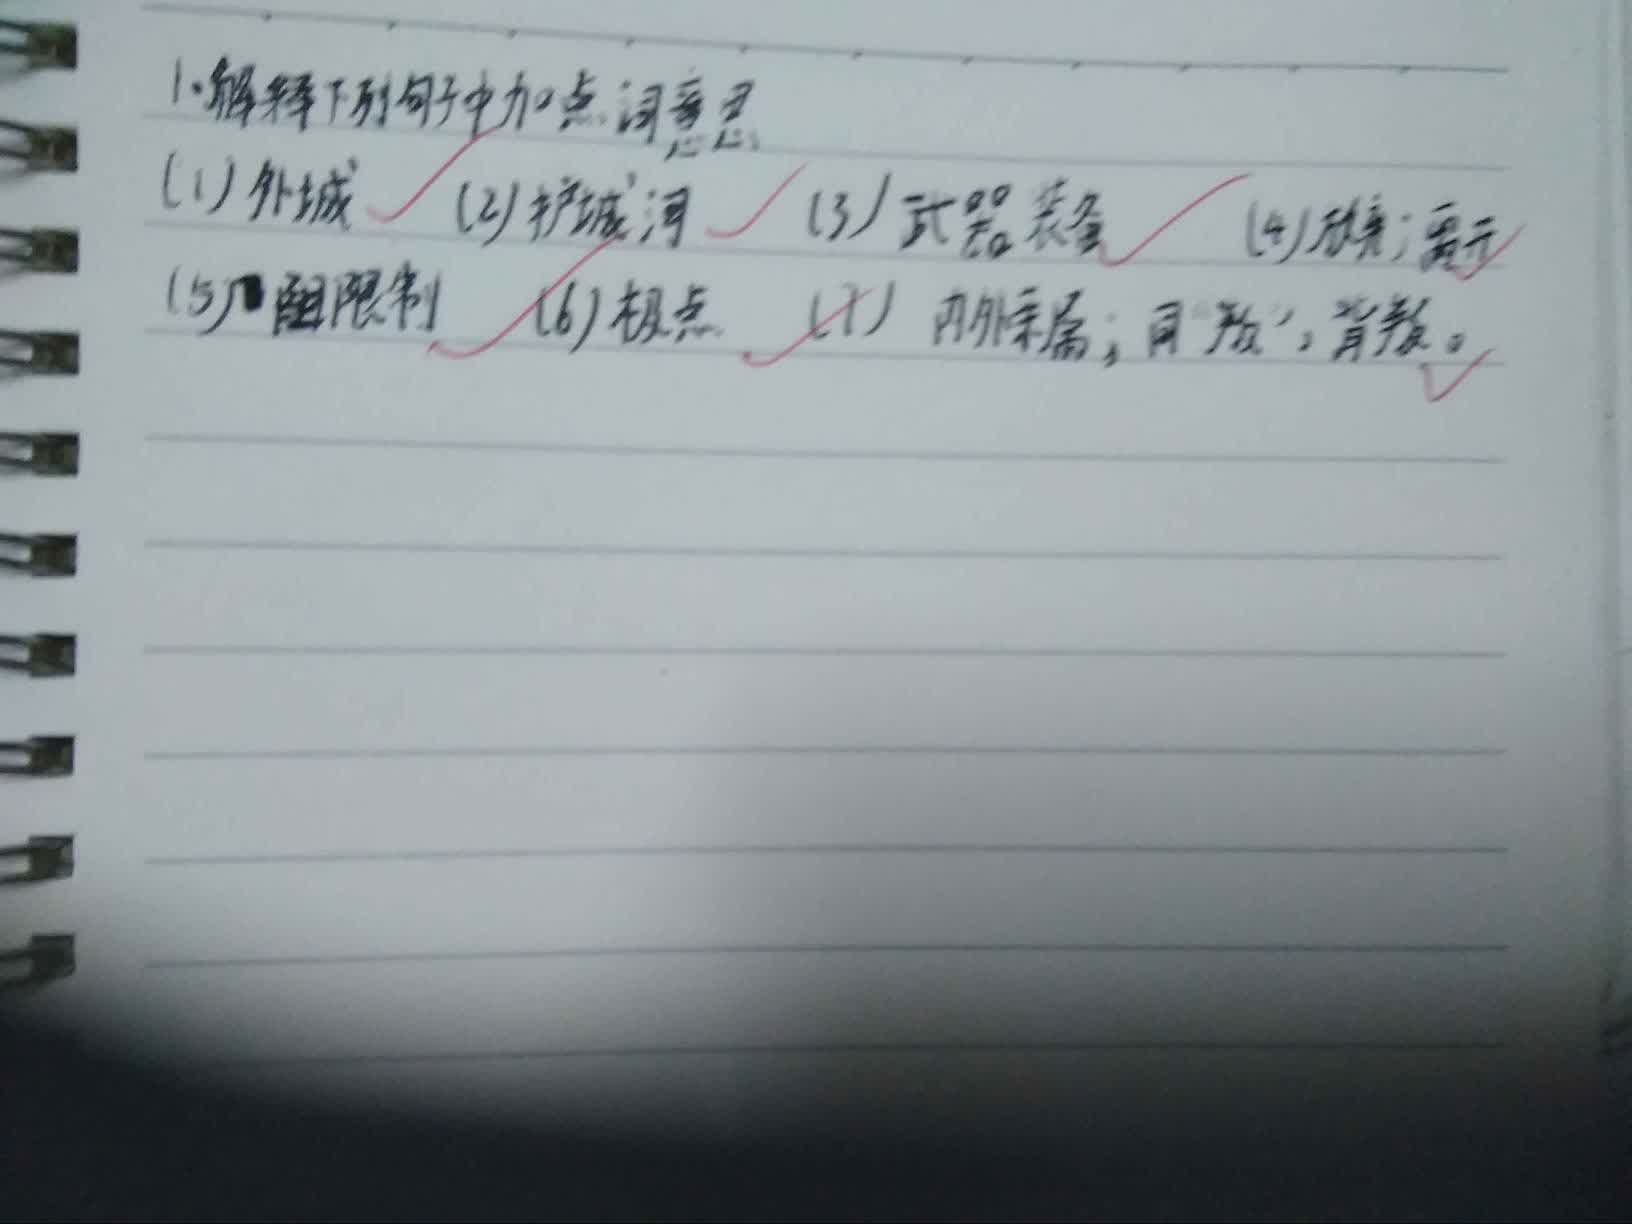 1.解释下列句子中加点词意思
(1)外城 (2)护城河 (3)武器装备 (4)放弃;离开
(5)限制 (6)极点 (7)内外亲属;同"叛",背叛。